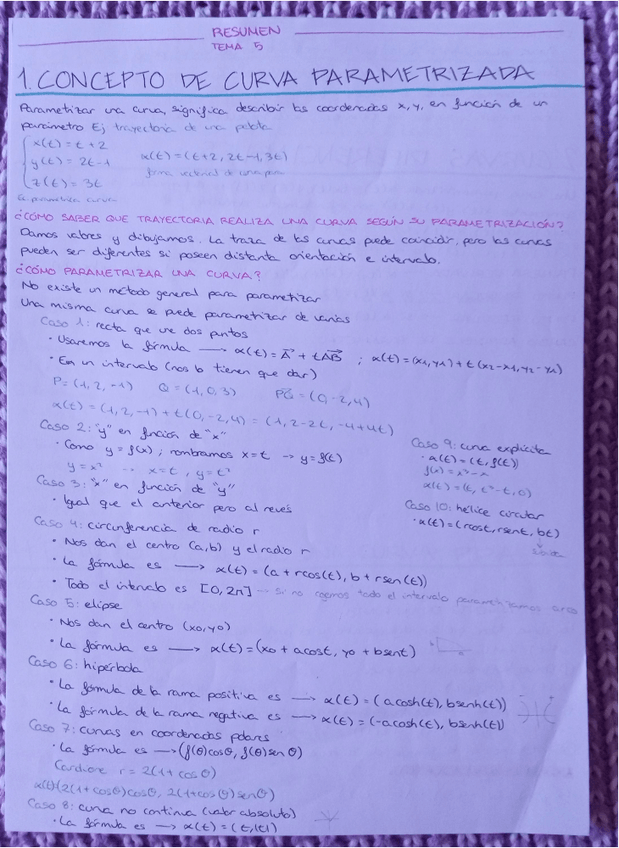 RESUMEN
TEMA 5
1. CONCEPTO DE CURVA PARAMETRIZADA
Parametrizar una curva, significa describir las coordenadas x, y, en función de un
parámetro Ej trayectoria de una pelota
x(t) = t + 2
y(t) = 2t - 1 α(t) = (t+2, 2t-1, 3t)
z(t) = 3t forma vectorial de una
¿CÓMO SABER QUE TRAYECTORIA REALIZA UNA CURVA SEGÚN SU PARAMETRIZACIÓN?
Damos valores y dibujamos. La traza de las curvas puede coincidir, pero las curvas
pueden ser diferentes si poseen distanta orientación e intervalo.
¿CÓMO PARAMETRIZAR UNA CURVA?
No existe un método general para parametrizar
Una misma curva se puede parametrizar de varias
Caso 1: recta que une dos puntos
· Usaremos la fórmula → α(t) = A⃗ + tAB⃗ ; α(t) = (x1, y1) + t (x2-x1, y2-y1)
· En un intervalo (nos lo tienen que dar)
P = (1, 2, -1) Q = (1, 0, 3) PQ⃗ = (0, -2, 4)
α(t) = (1, 2, -1) + t(0, -2, 4) = (1, 2-2t, -1+4t)
Caso 2: "y" en función de "x"
· Como y = f(x) ; nombramos x = t → y = f(t)
y = x² x = t, y = t²
Caso 3: "x" en función de "y"
· Igual que el anterior pero al revés
Caso 9: curva explícita
· α(t) = (t, f(t))
f(x) = x²-x
α(t) = (t, t²-t, 0)
Caso 10: hélice circular
· α(t) = (rcost, rsent, bt)
Caso 4: circunferencia de radio r
· Nos dan el centro (a, b) y el radio r
· La fórmula es → α(t) = (a + rcos(t), b + rsen(t))
· Todo el intervalo es [0, 2π] Si no cogemos todo el intervalo parametrizamos arco
Caso 5: elipse
· Nos dan el centro (x0, y0)
· La fórmula es → α(t) = (x0 + acost, y0 + bsent)
Caso 6: hipérbola
· La fórmula de la rama positiva es → α(t) = (acosh(t), bsenh(t))
· La fórmula de la rama negativa es → α(t) = (-acosh(t), bsenh(t))
Caso 7: curvas en coordenadas polares
· La fórmula es → (f(θ)cosθ, f(θ)senθ)
Cardiore r = 2(1 + cosθ)
α(t)(2(1+cosθ)cosθ, 2(1+cosθ)senθ)
Caso 8: curva no continua (valor absoluto)
· La fórmula es → α(t) = (t, |t|)